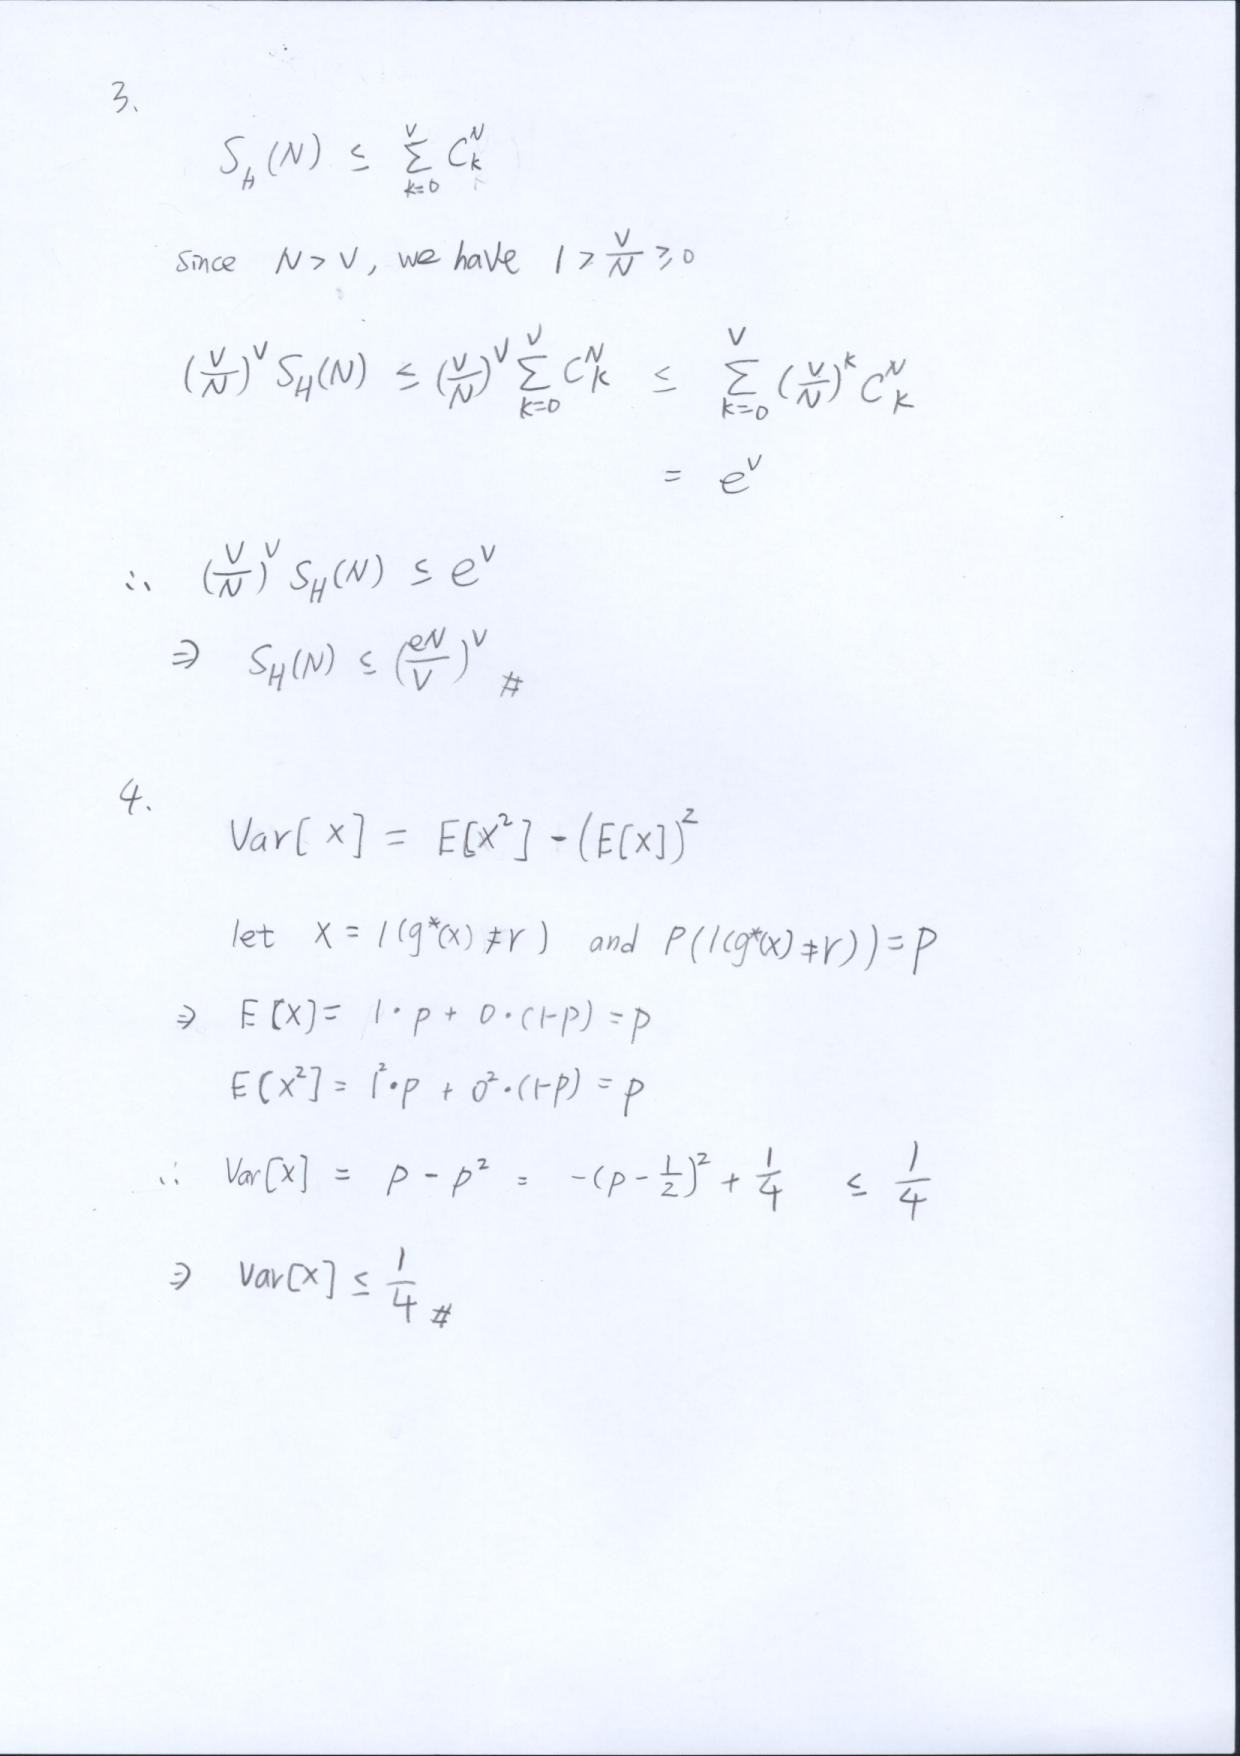 3.
S_H(N) ≤ Σ_{k=0}^{V} C_k^N
since N > V, we have 1 > V/N ≥ 0
(V/N)^V S_H(N) ≤ (V/N)^V Σ_{k=0}^{V} C_k^N ≤ Σ_{k=0}^{V} (V/N)^k C_k^N
= e^V
∴ (V/N)^V S_H(N) ≤ e^V
⇒ S_H(N) ≤ (eN/V)^V #
4.
Var[X] = E[X²] - (E[X])²
let X = 1(g*(x) ≠ Y) and P(1(g*(x) ≠ Y)) = P
⇒ E[X] = 1·p + 0·(1-p) = p
E[X²] = 1²·p + 0²·(1-p) = p
∴ Var[X] = p - p² = -(p - 1/2)² + 1/4 ≤ 1/4
⇒ Var[X] ≤ 1/4 #